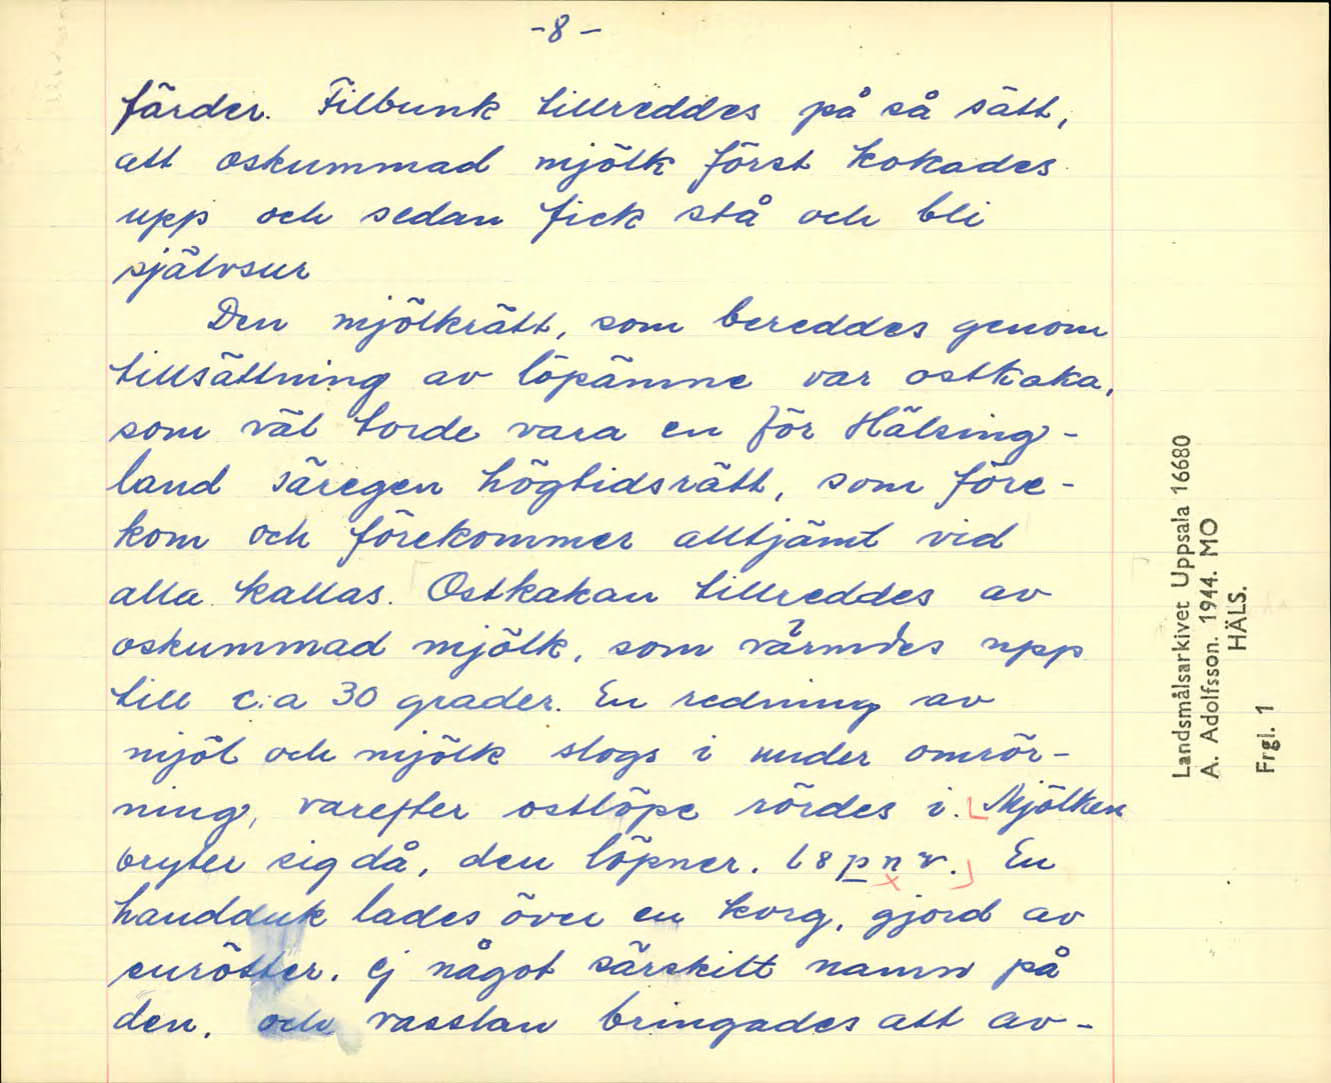 -8-
färder. Filbunk tillreddes på så sätt,
att oskummad mjölk först kokades
upp och sedan fick stå och bli
självsur
Den mjölkrätt, som bereddes genom
tillsättning av löpämne var ostkaka,
som väl torde vara en för Hälsing-
land säregen högtidsrätt, som före-
kom och förekommer alltjämt vid
alla kallas. Ostkakan tillreddes av
oskummad mjölk, som värmdes upp
till c:a 30 grader. En redning av
mjöl och mjölk slogs i under omrör-
ning, varefter ostlöpe rördes i. Mjölken
bryter sig då, den löpner. En
handduk lades över en korg, gjord av
enrötter. Ej något särskilt namn på
den, och vasslan bringades att av-
Landsmålsarkivet Uppsala 16680
A. Adolfsson. 1944. MO
HÄLS.
Frgl. 1